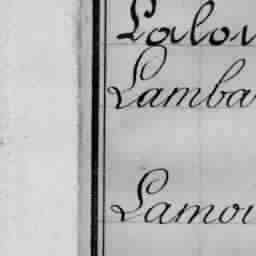 Lalou
Lamba
Lamou